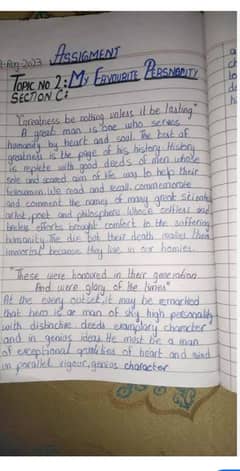 Aug-2023 ASSIGMENT
TOPIC NO 2: MY FAVOURITE PERSNOALITY
SECTION C:
"Greatness be nothing unless it be lasting"
A great man is one who serves
humanity by heart and soul. The best of
greatness is the page of his history. History
is replete with good deeds of men whose
sole and sacred aim of life was to help their
fellowmen. We read and recall, commemorate
and comment the names of many great
artist, poet and philosphers whose
tireless efforts brought comfort to the suffering
humanity. The die but their death makes them
immortal because they live in our homies.
"These were honoured in their generation
And were glory of the times"
At the every outset it may be remarked
that hero is ar man of sky high personality
with distinctive deeds exemplary character
and in genius ideas. He must be a man
of exceptional qualities of heart and mind
in parallel vigour, genios character